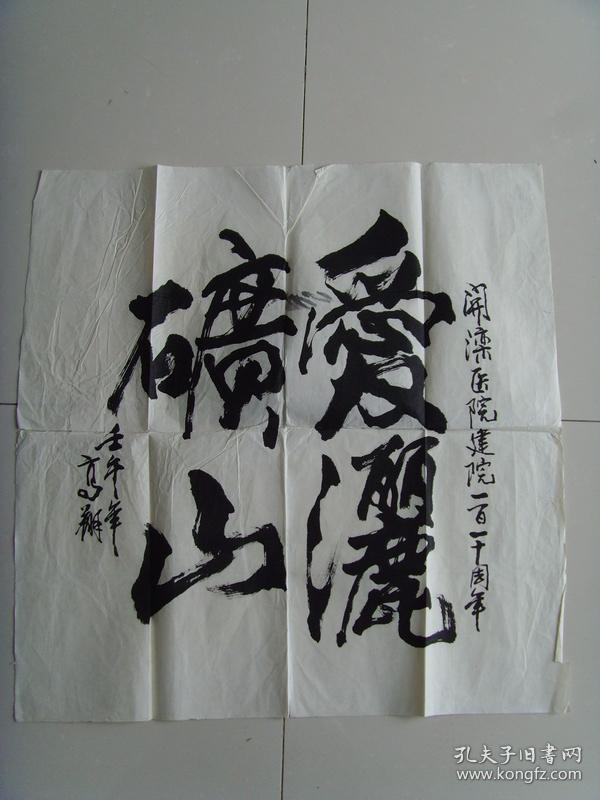 開滦医院建院一百一十周年
愛灑
礦山
壬午年
高翔
孔夫子旧书网
www.kongfz.com